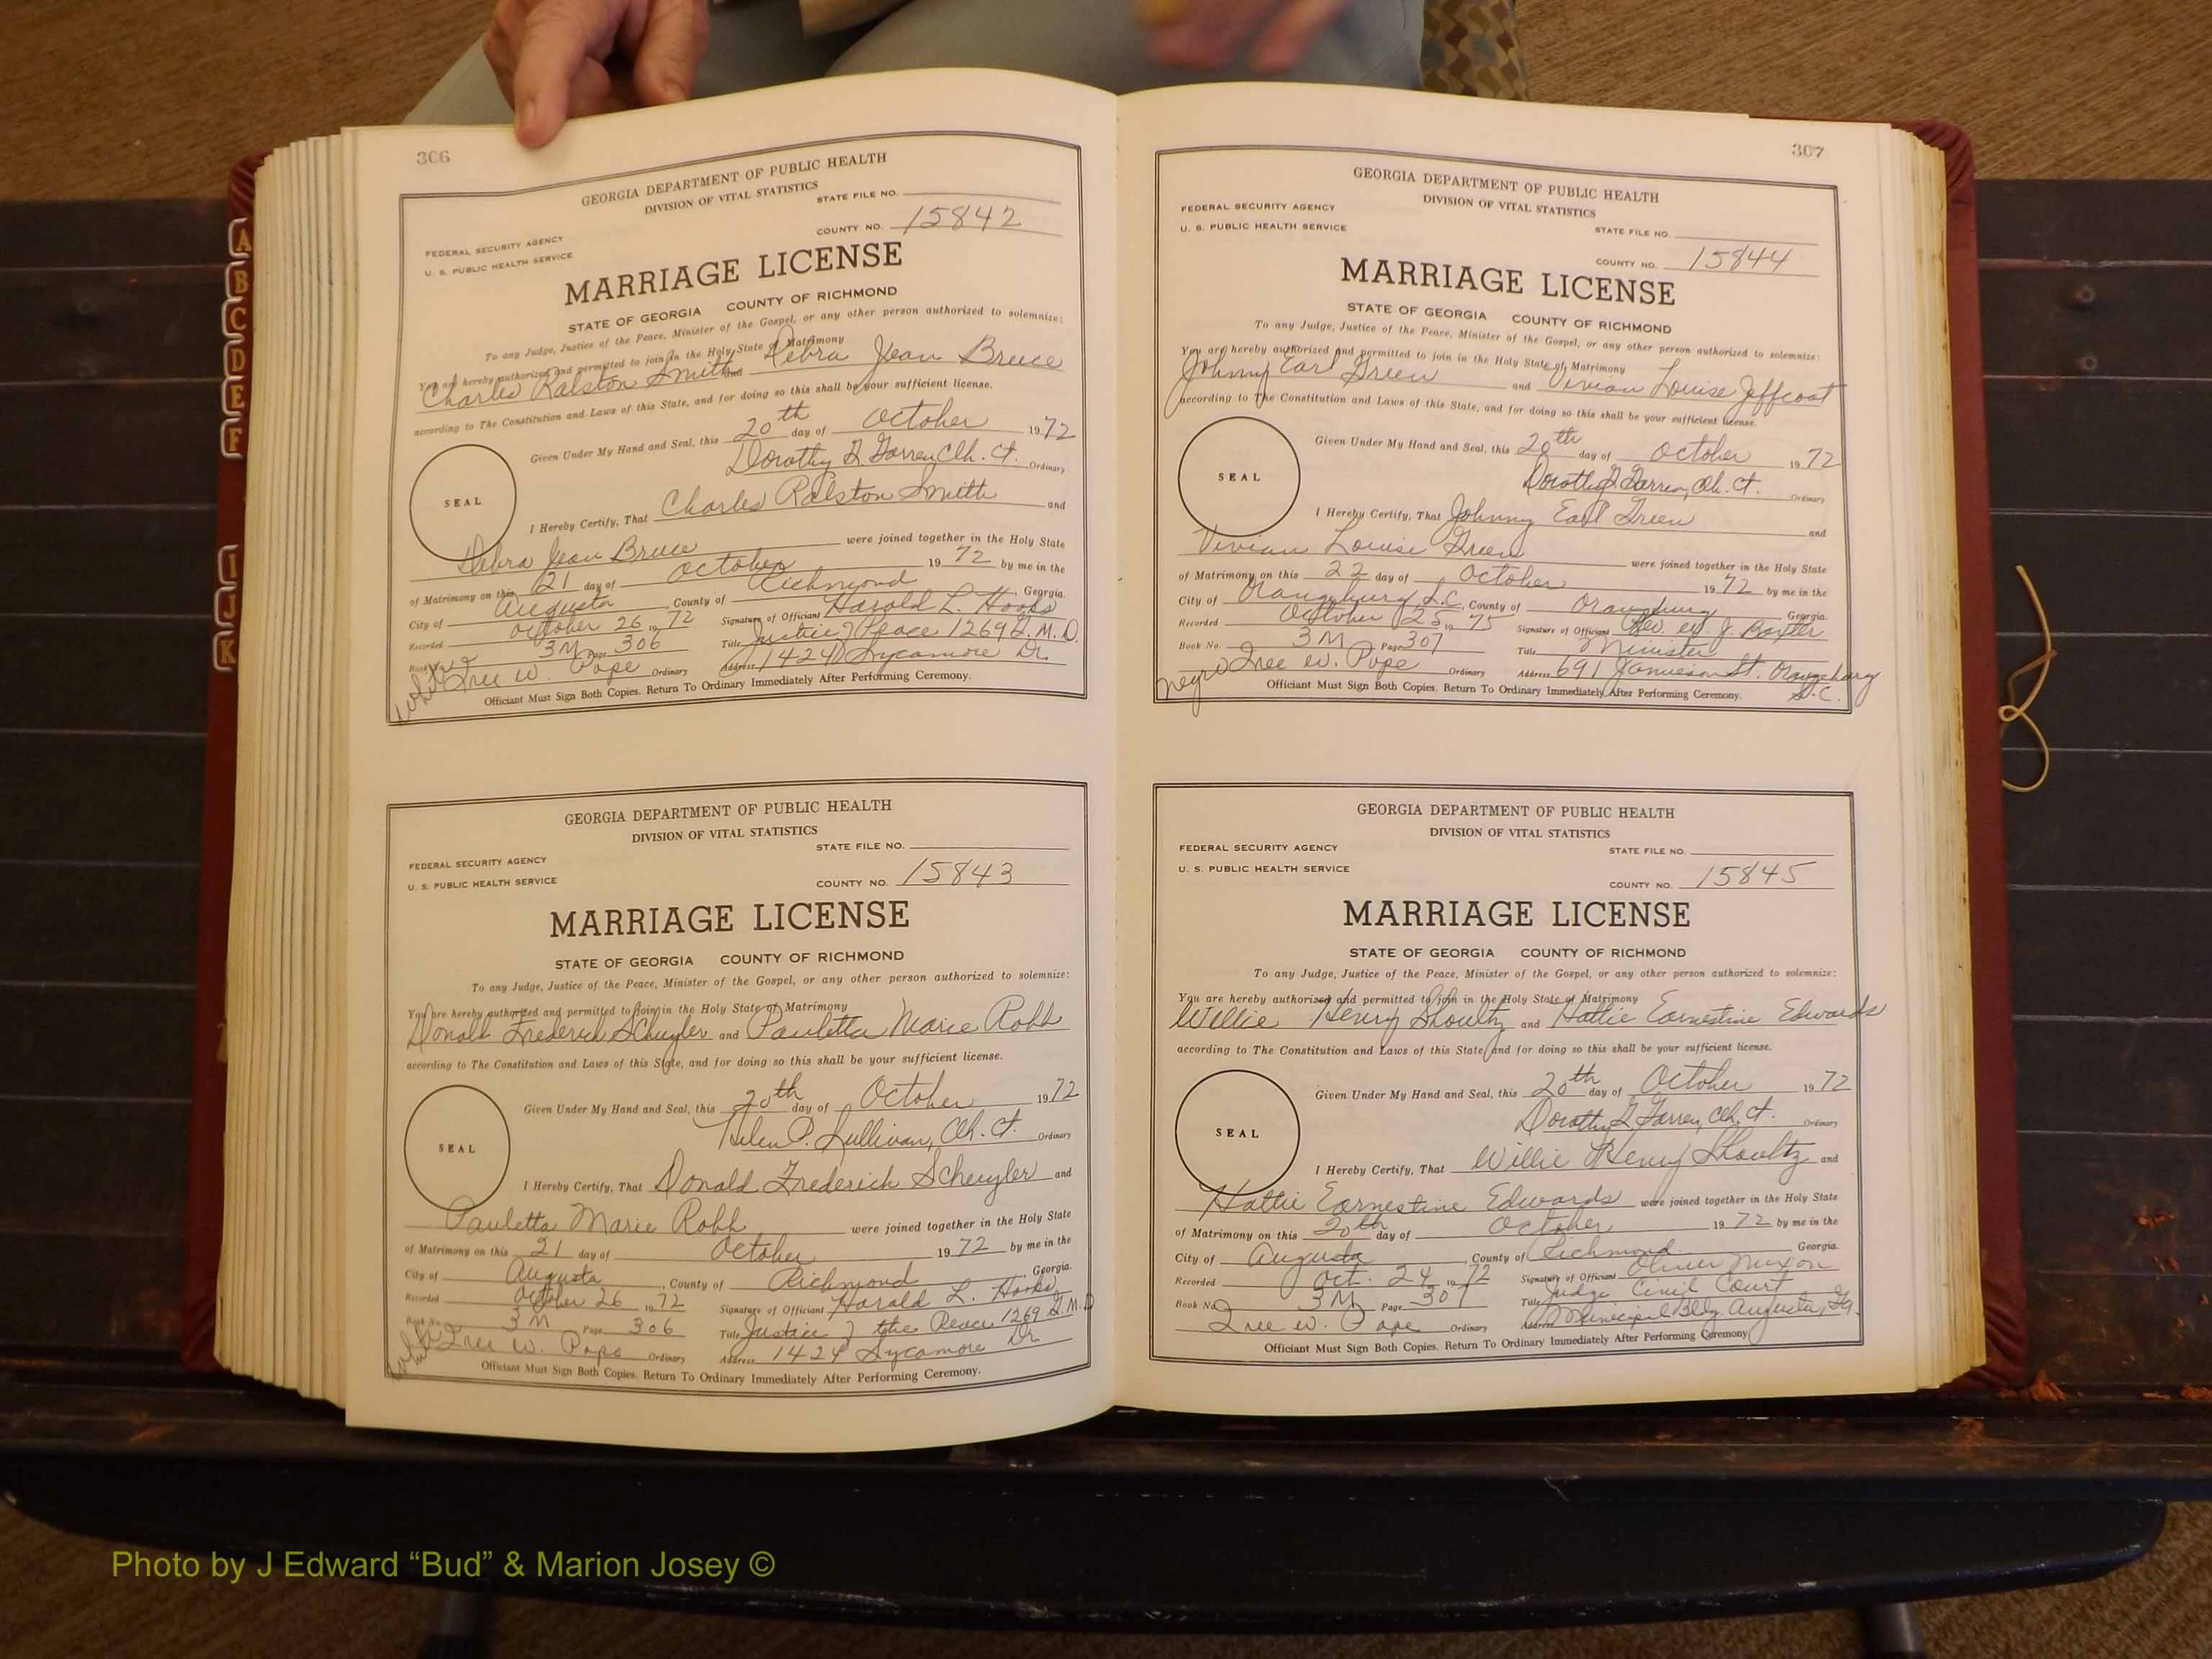 306
GEORGIA DEPARTMENT OF PUBLIC HEALTH
DIVISION OF VITAL STATISTICS
STATE FILE NO.
COUNTY NO. 15842
FEDERAL SECURITY AGENCY
U. S. PUBLIC HEALTH SERVICE
MARRIAGE LICENSE
STATE OF GEORGIA COUNTY OF RICHMOND
To any Judge, Justice of the Peace, Minister of the Gospel, or any other person authorized to solemnize:
You are hereby authorized and permitted to join in the Holy State of Matrimony
Charles Ralston Smith and Debra Jean Bruce
according to The Constitution and Laws of this State, and for doing so this shall be your sufficient license.
Given Under My Hand and Seal, this 20th day of October 1972
Dorothy Clk. Ct. Ordinary
SEAL
I Hereby Certify, That Charles Ralston Smith and
Debra Jean Bruce were joined together in the Holy State
of Matrimony on this 21 day of October 1972 by me in the
City of Augusta, County of Richmond, Georgia.
Recorded October 26 1972 Signature of Officiant Harold L. Hooks
Book No. 3M Page 306 Title Justice of Peace 1269 G.M.D.
W. Pope Ordinary Address 1424 Sycamore Dr.
white
Officiant Must Sign Both Copies. Return To Ordinary Immediately After Performing Ceremony.
GEORGIA DEPARTMENT OF PUBLIC HEALTH
DIVISION OF VITAL STATISTICS
STATE FILE NO.
FEDERAL SECURITY AGENCY
U. S. PUBLIC HEALTH SERVICE
COUNTY NO. 15843
MARRIAGE LICENSE
STATE OF GEORGIA COUNTY OF RICHMOND
To any Judge, Justice of the Peace, Minister of the Gospel, or any other person authorized to solemnize:
You are hereby authorized and permitted to join in the Holy State of Matrimony
Donald Frederick Scheuyler and Pauletta Marie Robb
according to The Constitution and Laws of this State, and for doing so this shall be your sufficient license.
Given Under My Hand and Seal, this 20th day of October 1972
Helen P. Sullivan, Clk. Ct. Ordinary
SEAL
I Hereby Certify, That Donald Frederick Scheuyler and
Pauletta Marie Robb were joined together in the Holy State
of Matrimony on this 21 day of October 1972 by me in the
City of Augusta, County of Richmond, Georgia.
Recorded October 26 1972 Signature of Officiant Harold L. Hooks
Book No. 3M Page 306 Title Justice of the Peace 1269 G.M.D
W. Pope Ordinary Address 1424 Sycamore Dr
white
Officiant Must Sign Both Copies. Return To Ordinary Immediately After Performing Ceremony.
307
GEORGIA DEPARTMENT OF PUBLIC HEALTH
DIVISION OF VITAL STATISTICS
FEDERAL SECURITY AGENCY
U. S. PUBLIC HEALTH SERVICE
STATE FILE NO.
COUNTY NO. 15844
MARRIAGE LICENSE
STATE OF GEORGIA COUNTY OF RICHMOND
To any Judge, Justice of the Peace, Minister of the Gospel, or any other person authorized to solemnize:
You are hereby authorized and permitted to join in the Holy State of Matrimony
Johnny Earl Green and Vivian Louise Jeffcoat
according to The Constitution and Laws of this State, and for doing so this shall be your sufficient license.
Given Under My Hand and Seal, this 20th day of October 1972
Dorothy Clk. Ct. Ordinary
SEAL
I Hereby Certify, That Johnny Earl Green and
Vivian Louise Green were joined together in the Holy State
of Matrimony on this 22 day of October 1972 by me in the
City of Orangeburg S.C., County of Orangeburg Georgia.
Recorded October 25 1975 Signature of Officiant Rev. J. Baxter
Book No. 3M Page 307 Title Minister
W. Pope Ordinary Address 691 Jamieson St. Orangeburg S.C.
negro
Officiant Must Sign Both Copies. Return To Ordinary Immediately After Performing Ceremony.
GEORGIA DEPARTMENT OF PUBLIC HEALTH
DIVISION OF VITAL STATISTICS
FEDERAL SECURITY AGENCY
U. S. PUBLIC HEALTH SERVICE
STATE FILE NO.
COUNTY NO. 15845
MARRIAGE LICENSE
STATE OF GEORGIA COUNTY OF RICHMOND
To any Judge, Justice of the Peace, Minister of the Gospel, or any other person authorized to solemnize:
You are hereby authorized and permitted to join in the Holy State of Matrimony
Willie Henry Shoultz and Hattie Earnestine Edwards
according to The Constitution and Laws of this State and for doing so this shall be your sufficient license.
Given Under My Hand and Seal, this 20th day of October 1972
Dorothy Clk. Ct. Ordinary
SEAL
I Hereby Certify, That Willie Henry Shoultz and
Hattie Earnestine Edwards were joined together in the Holy State
of Matrimony on this 20th day of October 1972 by me in the
City of Augusta, County of Richmond Georgia.
Recorded Oct. 24 1972 Signature of Officiant Oliver Nixon
Book No. 3M Page 307 Title Judge Civil Court
W. Pope Ordinary Address Municipal Bldg Augusta, Ga.
Officiant Must Sign Both Copies. Return To Ordinary Immediately After Performing Ceremony
A
B
C
D
E
F
I
J
K
Photo by J Edward “Bud” & Marion Josey ©